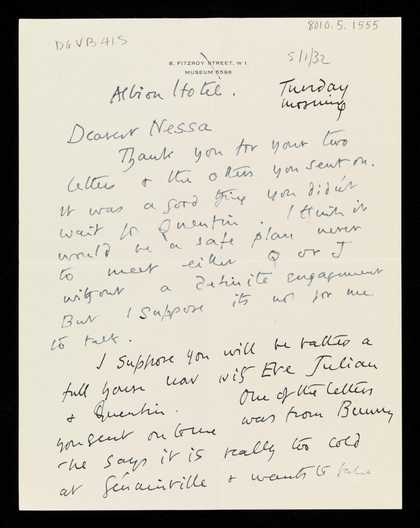 8010.5.1555
DGVB415
8, FITZROY STREET, W 1
MUSEUM 6598
5/1/32
Albion Hotel.
Tuesday
morning
Dearest Nessa
Thank you for your two
letters & the others you sent on.
It was a good thing you didn't
wait for Quentin. I think it
would be a safe plan never
to meet either Q or J
without a definite engagement
But I suppose its not for me
to talk.
I suppose you will be rather a
full house now with Eve Julian
& Quentin. One of the letters
you sent on to me was from Bunny
He says it is really too cold
at Gérainville & wants to